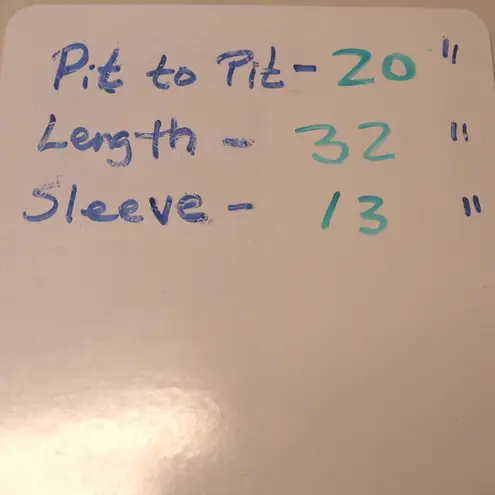 Pit to Pit - 20 "
Length - 32 "
Sleeve - 13 "